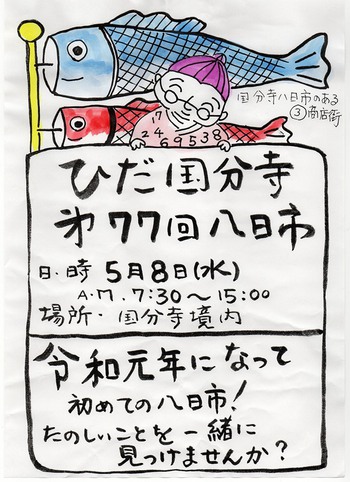 国分寺八日市のある
③商店街
17
24 69538
ひだ国分寺
第77回八日市
日・時 5月8日(水)
A.M.7:30～15:00
場所・国分寺境内
令和元年になって
初めての八日市!
たのしいことを一緒に
見つけませんか?